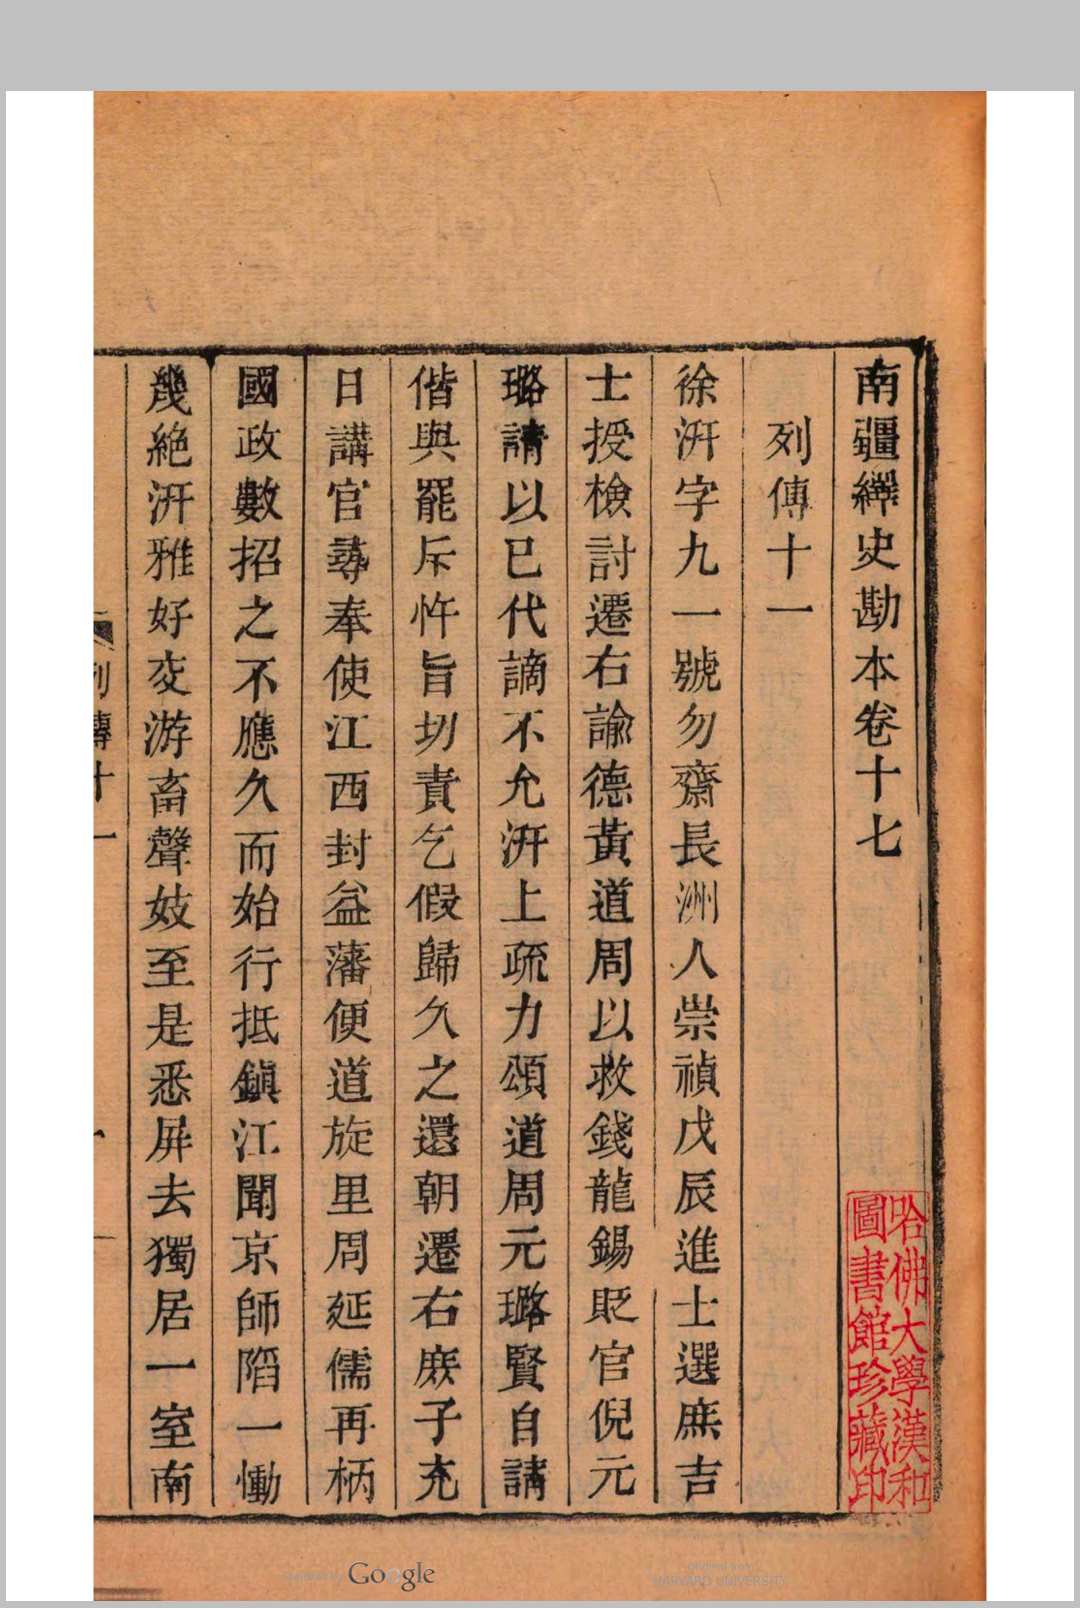 南疆繹史勘本卷十七
列傳十一
徐汧字九一號勿齋長洲人崇禎戊辰進士選庶吉
士授檢討遷右諭德黃道周以救錢龍錫貶官倪元
璐請以已代謫不允汧上疏力頌道周元璐賢自請
偕與罷斥忤旨切責乞假歸久之還朝遷右庶子充
日講官尋奉使江西封益藩便道旋里周延儒再柄
國政數招之不應久而始行抵鎮江聞京師陷一慟
幾絕汧雅好交游畜聲妓至是悉屏去獨居一室南
列傳十一
哈佛大學漢和
圖書館珍藏印
Digitized by Google
Original from
HARVARD UNIVERSITY